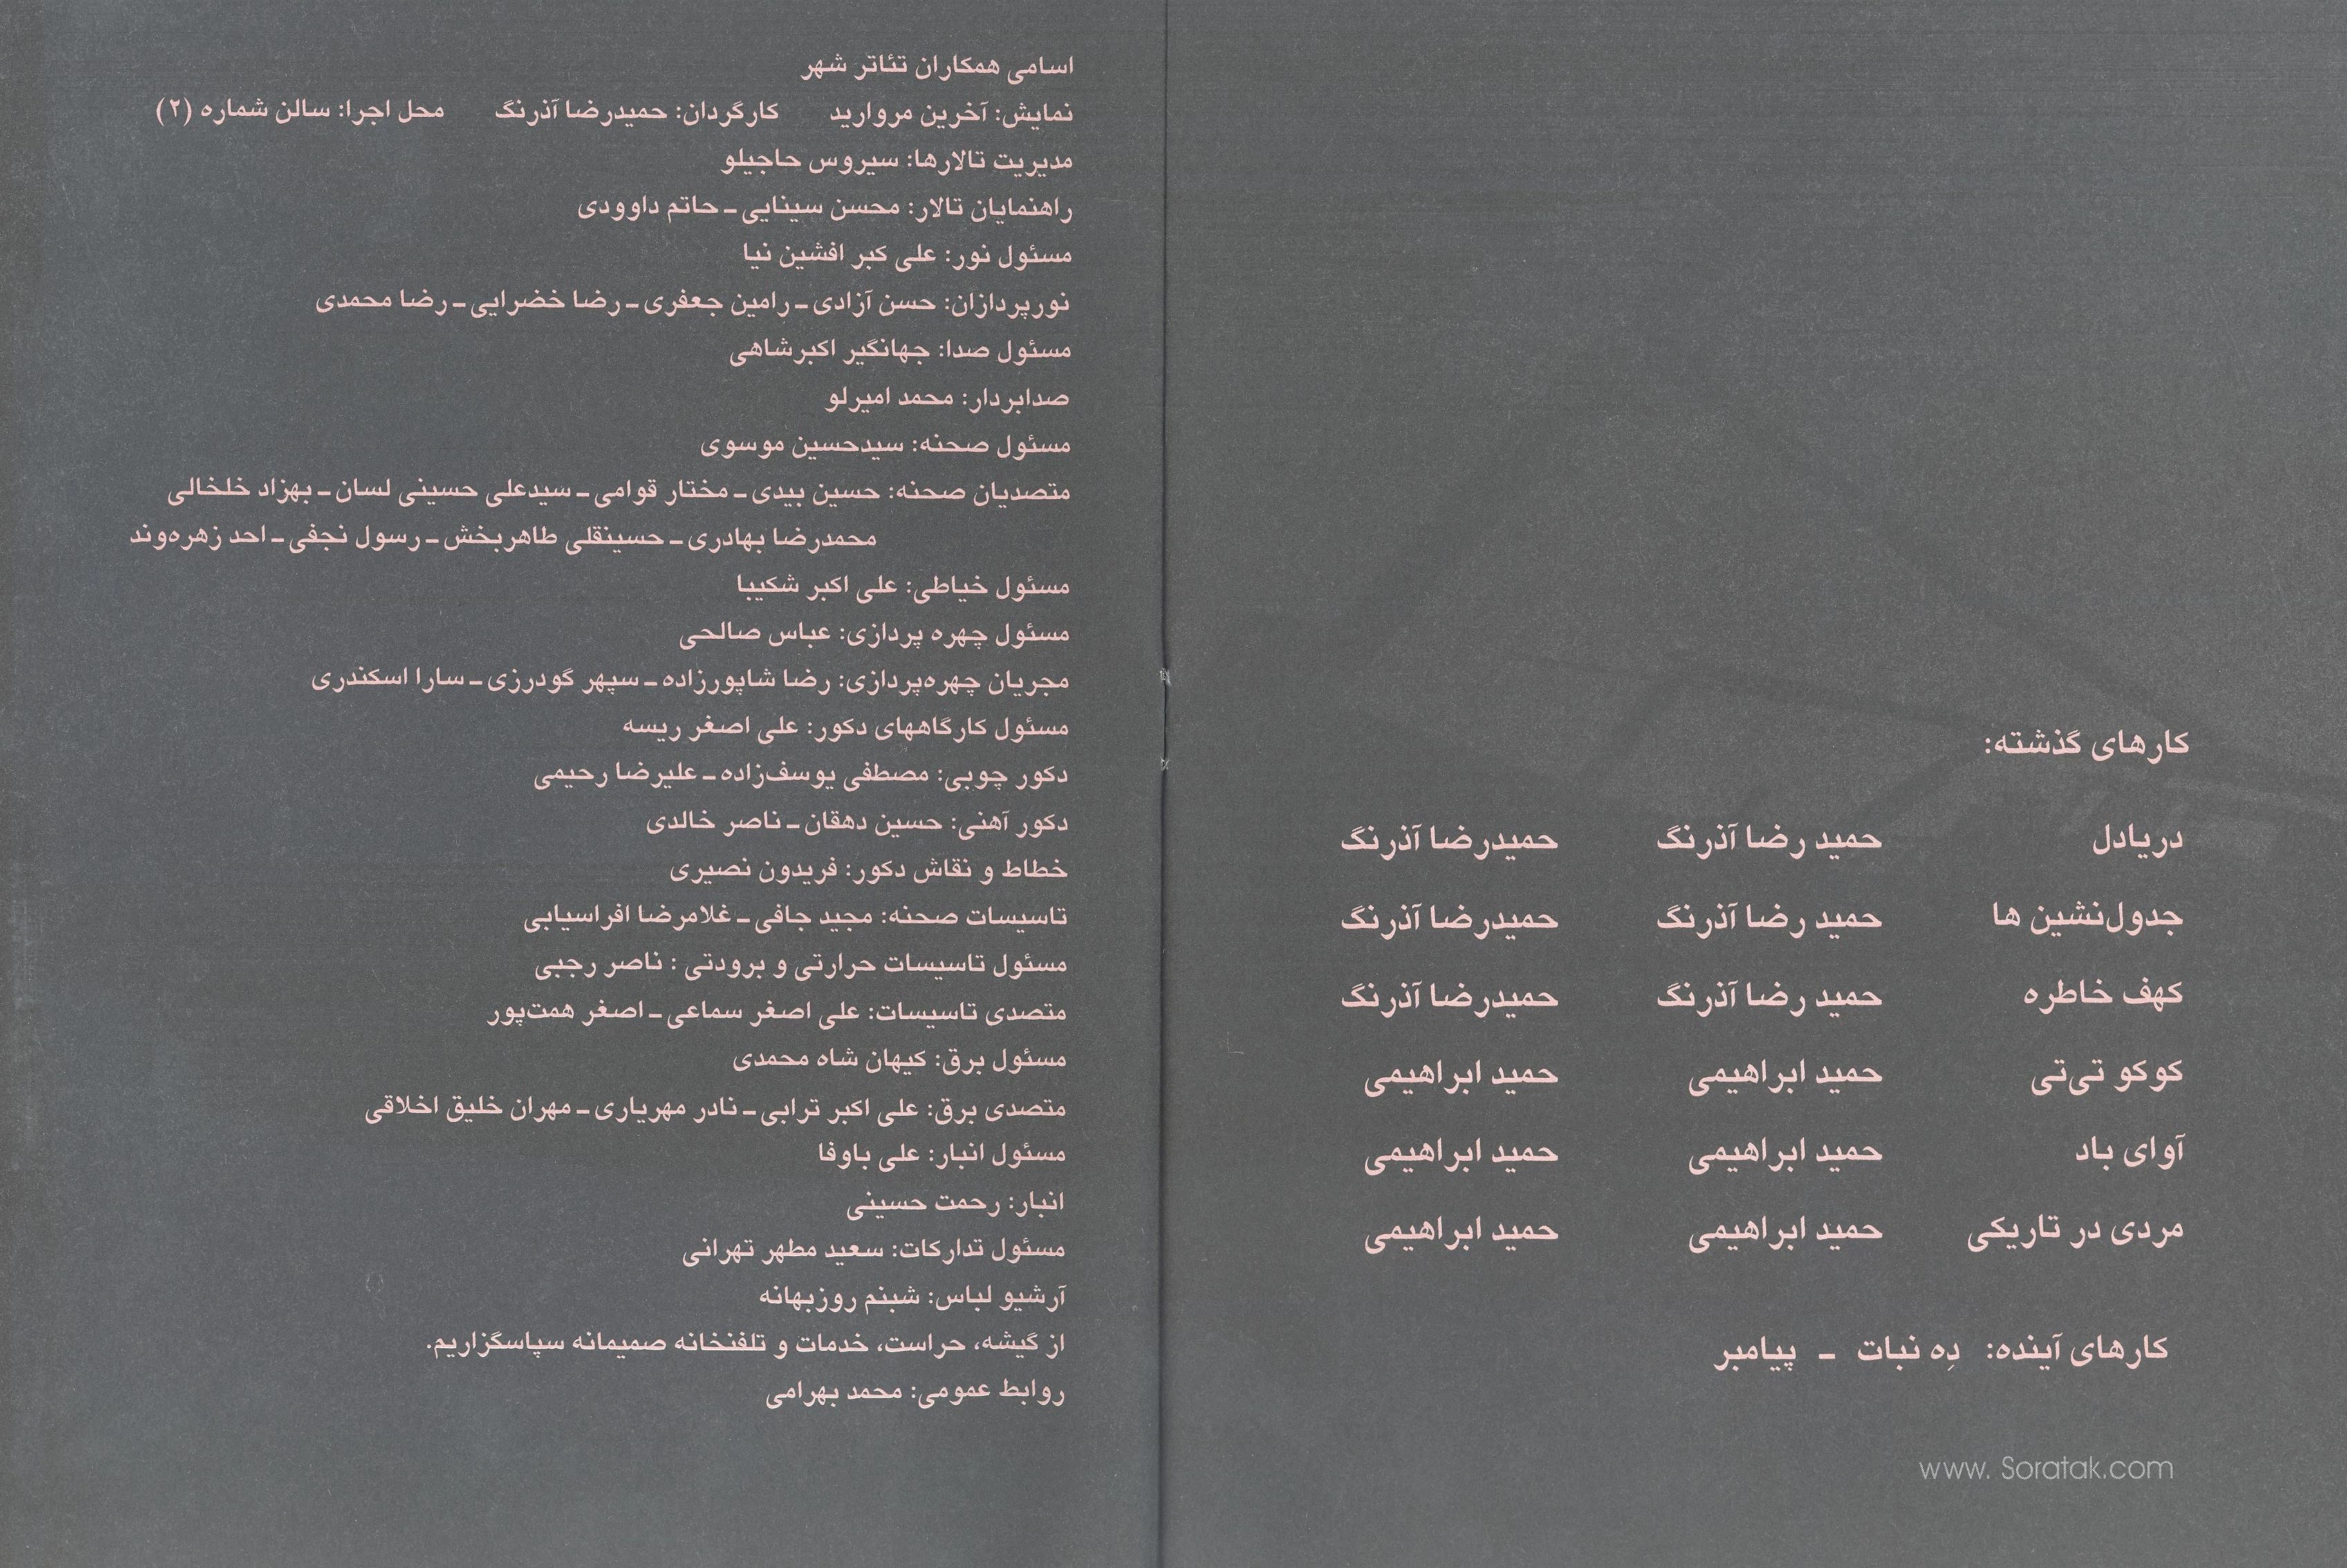 کارهای گذشته:
دریادل حمید رضا آذرنگ حمیدرضا آذرنگ
جدول‌نشین ها حمید رضا آذرنگ حمیدرضا آذرنگ
کهف خاطره حمید رضا آذرنگ حمیدرضا آذرنگ
کوکو تی‌تی حمید ابراهیمی حمید ابراهیمی
آوای باد حمید ابراهیمی حمید ابراهیمی
مردی در تاریکی حمید ابراهیمی حمید ابراهیمی
کارهای آینده: دِه نبات ـ پیامبر
www. Soratak.com
اسامی همکاران تئاتر شهر
نمایش: آخرین مروارید کارگردان: حمیدرضا آذرنگ محل اجرا: سالن شماره (۲)
مدیریت تالارها: سیروس حاجیلو
راهنمایان تالار: محسن سینایی ـ حاتم داوودی
مسئول نور: علی کبر افشین نیا
نورپردازان: حسن آزادی ـ رامین جعفری ـ رضا خضرایی ـ رضا محمدی
مسئول صدا: جهانگیر اکبرشاهی
صدابردار: محمد امیرلو
مسئول صحنه: سیدحسین موسوی
متصدیان صحنه: حسین بیدی ـ مختار قوامی ـ سیدعلی حسینی لسان ـ بهزاد خلخالی
محمدرضا بهادری ـ حسینقلی طاهربخش ـ رسول نجفی ـ احد زهره‌وند
مسئول خیاطی: علی اکبر شکیبا
مسئول چهره پردازی: عباس صالحی
مجریان چهره‌پردازی: رضا شاپورزاده ـ سپهر گودرزی ـ سارا اسکندری
مسئول کارگاههای دکور: علی اصغر ریسه
دکور چوبی: مصطفی یوسف‌زاده ـ علیرضا رحیمی
دکور آهنی: حسین دهقان ـ ناصر خالدی
خطاط و نقاش دکور: فریدون نصیری
تاسیسات صحنه: مجید جافی ـ غلامرضا افراسیابی
مسئول تاسیسات حرارتی و برودتی : ناصر رجبی
متصدی تاسیسات: علی اصغر سماعی ـ اصغر همت‌پور
مسئول برق: کیهان شاه محمدی
متصدی برق: علی اکبر ترابی ـ نادر مهریاری ـ مهران خلیق اخلاقی
مسئول انبار: علی باوفا
انبار: رحمت حسینی
مسئول تدارکات: سعید مطهر تهرانی
آرشیو لباس: شبنم روزبهانه
از گیشه، حراست، خدمات و تلفنخانه صمیمانه سپاسگزاریم.
روابط عمومی: محمد بهرامی